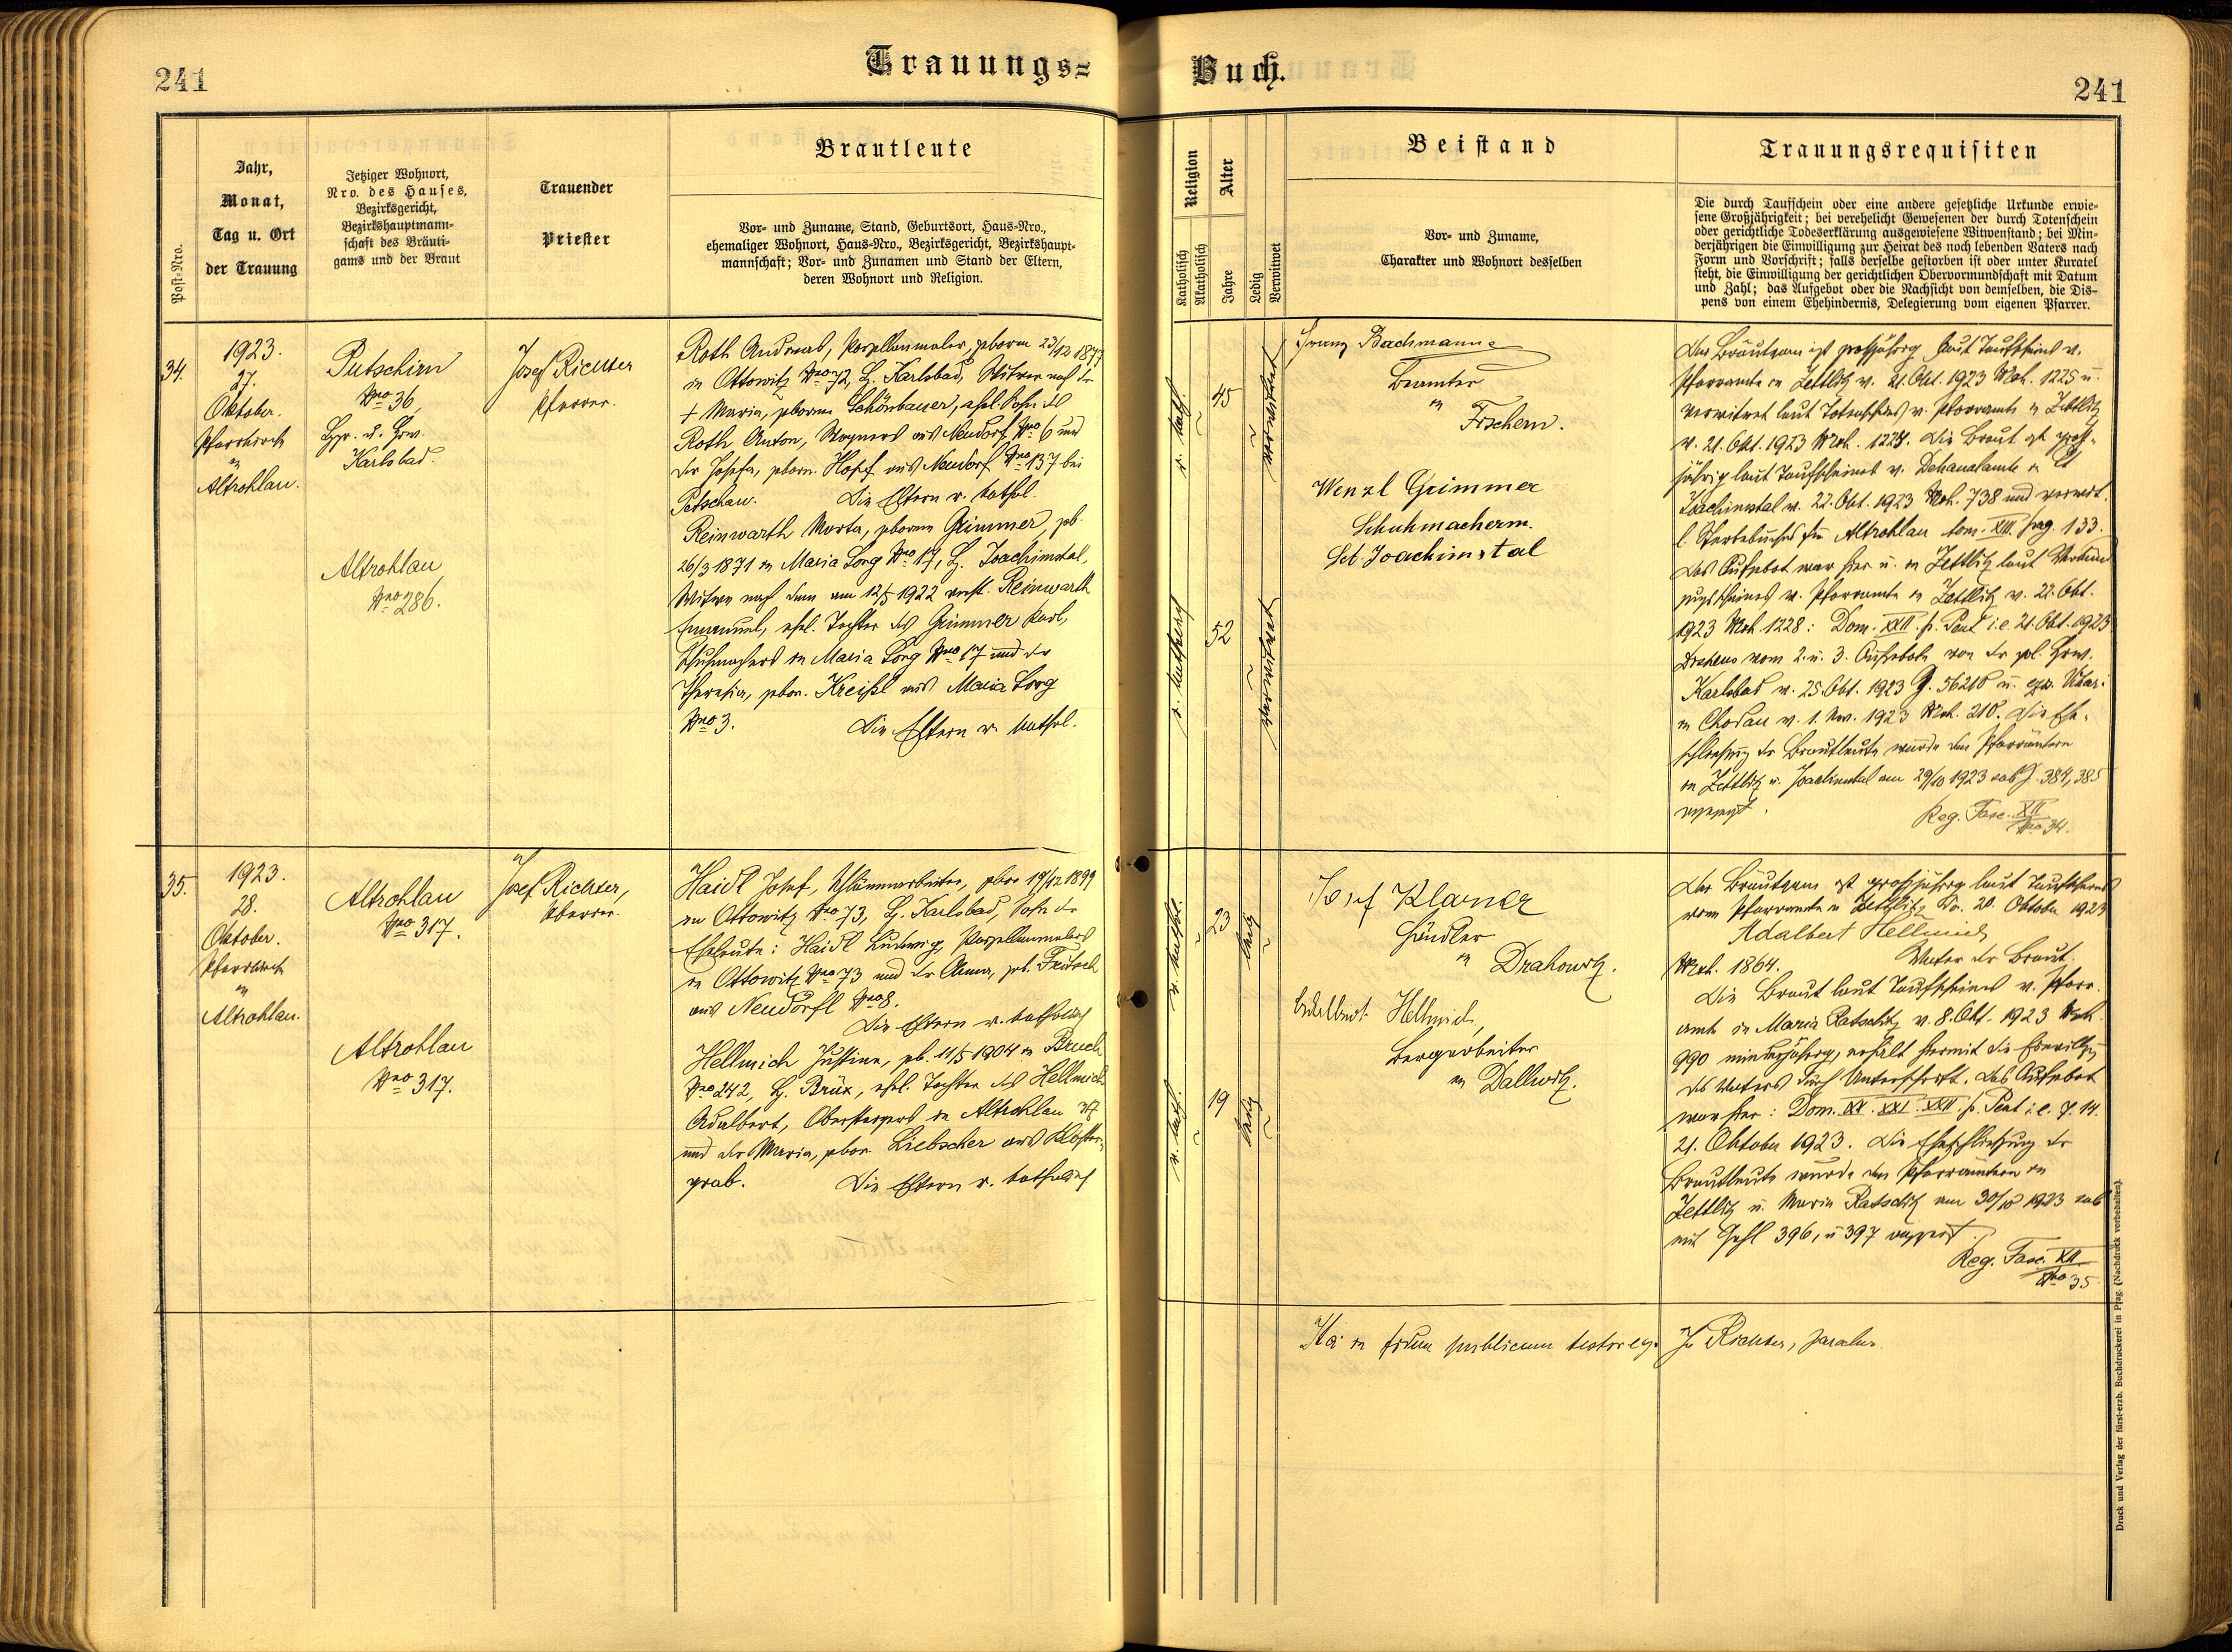 241
Trauungs-
Buch.
241
Post-Nro.
Jahr,
Monat,
Tag u. Ort
der Trauung
Jetziger Wohnort,
Nro. des Hauses,
Bezirksgericht,
Bezirkshauptmann-
schaft des Bräuti-
gams und der Braut
Trauender
Priester
Brautleute
Vor- und Zuname, Stand, Geburtsort, Haus-Nro.,
ehemaliger Wohnort, Haus-Nro., Bezirksgericht, Bezirkshaupt-
mannschaft; Vor- und Zunamen und Stand der Eltern,
deren Wohnort und Religion.
Religion
Katholisch
Akatholisch
Alter
Jahre
Ledig
Verwitwet
Beistand
Vor- und Zuname,
Charakter und Wohnort desselben
Trauungsrequisiten
Die durch Taufschein oder eine andere gesetzliche Urkunde erwie-
sene Großjährigkeit; bei verehelicht Gewesenen der durch Totenschein
oder gerichtliche Todeserklärung ausgewiesene Witwenstand; bei Min-
derjährigen die Einwilligung zur Heirat des noch lebenden Vaters nach
Form und Vorschrift; falls derselbe gestorben ist oder unter Kuratel
steht, die Einwilligung der gerichtlichen Obervormundschaft mit Datum
und Zahl; das Aufgebot oder die Nachsicht von demselben, die Dis-
pens von einem Ehehindernis, Delegierung vom eigenen Pfarrer.
34.
1923.
27.
Oktober.
Pfarrkirche
in
Altrohlau.
Putschirn
Nro 36,
Karlsbad.
Altrohlau
Nro 286.
Josef Richter
Pfarrer.
Roth Andreas, Porzellanmaler, geboren 23/12 1877
in Ottowitz Nro 72, B. Karlsbad, Witwer nach der
+ Maria, geboren Schönbauer, ehel. Sohn des
Roth Anton, Wagners aus Neudorf Nro 6 und
der Josefa, geborn. Hopf aus Neudorf Nro 137 bei
Petschau. Die Eltern r. kathol.
Reinwarth Marta, geborene Grimmer, geb.
26/3 1871 in Maria Sorg Nro 17, B. Joachimstal,
Witwe nach dem am 12/5 1922 verst. Reinwarth
Emanuel, ehel. Tochter des Grimmer Karl,
Schuhmachers in Maria Sorg Nro 17 und der
Theresia, gebor. Kreißl aus Maria Sorg
Nro 3. Die Eltern r. kathol.
r. kath.
45
verwitwet
r. katholisch
52
verwitwet
Franz Bachmann
Beamter
in
Fischern.
Wenzl Grimmer
Schuhmacherm.
Sct Joachimstal
Der Bräutigam ist großjährig laut Taufschein v.
Pfarramte in Zettlitz v. 21. Okt. 1923 Mtrk. 1225 u.
verwitwet laut Totenschein v. Pfarramte in Zettlitz
v. 21. Okt. 1923 Mtrk. 1228. Die Braut ist groß-
jährig laut Taufscheines v. Dekanalamte in St
Joachimstal v. 22. Okt. 1923 Mtrk. 738 und verwit.
l. Sterbebuches in Altrohlau tom. XIII. pag. 133.
Das Aufgebot war hier u. in Zettlitz laut Verkün-
v. Pfarramte in Zettlitz v. 22. Okt.
1923 Mtrk. 1228: Dom. XXII. p. Pent i.e. 21. Okt. 1923
vom 2. u. 3. Aufgebote von der
Karlsbad v. 25. Okt. 1923
in Chodau v. 1. Nov. 1923 Mtrk. 210. Die Ehe-
schließung der Brautleute wurde den Pfarrämtern
in Zettlitz u. Joachimstal am 29/10 1923 sub 384, 385
angezeigt.
Reg. Fasc. XII
Nro 34.
35.
1923.
28.
Oktober.
Pfarrkirche
in
Altrohlau.
Altrohlau
Nro 317.
Altrohlau
Nro 317.
Josef Richter,
Pfarrer.
Haidl Josef, geboren 19/12 1899
in Ottowitz Nro 73, B. Karlsbad, Sohn der
Eheleute: Haidl Ludwig, Porzellanmalers
in Ottowitz Nro 73 und der Anna, geb. Fritsch
aus Neudörfl Nro 8.
Die Eltern r. katholisch
Hellmich Justine, geb. 11/5 1904 in Bruch
Nro 242, B. Brüx, ehel. Tochter des Hellmich
Adalbert, Obersteigers in Altrohlau 317
und der Maria, gebor. Liebscher aus Kloster-
grab. Die Eltern r. katholisch
r. kathol.
23
ledig
r. kath.
19
ledig
Josef Klarner
Händler
in Drahowitz.
Adalbert Hellmich,
Bergarbeiter
in Dallwitz.
Der Bräutigam ist großjährig laut Taufscheines
vom Pfarramte in Zettlitz v. 20. Oktober 1923
Adalbert Hellmich
Mtrk. 1864. Vater der Braut.
Die Braut laut Taufscheines v. Pfarr-
amte in Maria Ratschitz v. 8. Okt. 1923 Mtrk.
990 minderjährig, erhält hiermit die Einwilligung
des Vaters durch Unterschrift. Das Aufgebot
war hier: Dom. XX. XXI. XXII. p. Pent i.e. 7. 14.
21. Oktober 1923. Die Eheschließung der
Brautleute wurde den Pfarrämtern in
Zettlitz u. Maria Ratschitz am 30/10 1923 sub
mit Zahl 396, u 397 angezeigt.
Reg. Fasc. XII
Nro 35
Ita in fidem publicam testor ego Jos. Richter, parochus.
Druck und Verlag der fürst-erzb. Buchdruckerei in Prag. (Nachdruck vorbehalten).